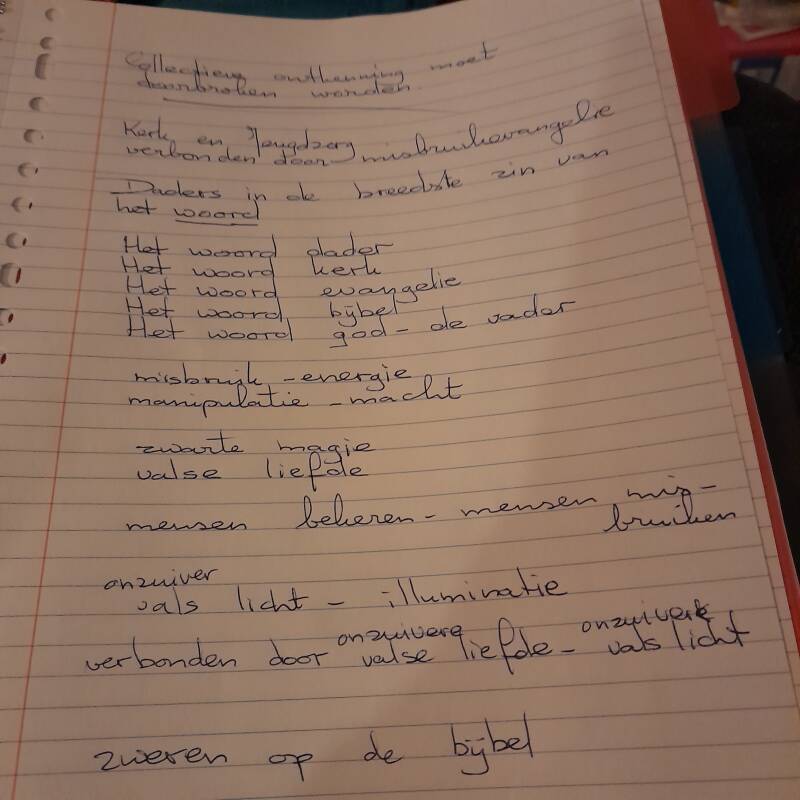 Collectieve ontkenning moet
doorbroken worden.
Kerk en Jeugdzorg misbruikevangelie
verbonden door
Daders in de breedste zin van
het woord
Het woord dader
Het woord kerk
Het woord evangelie
Het woord bijbel
Het woord god - de vader
misbruik - energie
manipulatie - macht
zwarte magie
valse liefde
mensen bekeren - mensen mis-
bruiken
onzuiver
vals licht - illuminatie
onzuivere onzuiver
verbonden door valse liefde - vals licht
zweren op de bijbel